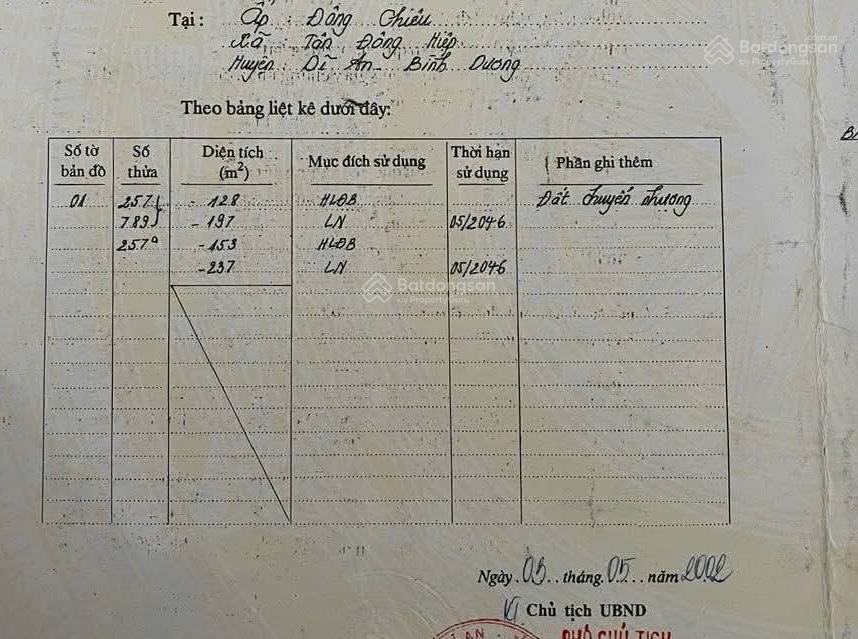 Tại : Ấp Đông Chiêu
Xã Tân Đông Hiệp
Huyện Dĩ An Bình Dương
Batdongsan.com.vn
by PropertyGuru
Theo bảng liệt kê dưới đây:
Số tờ bản đồ Số thửa Diện tích (m²) Mục đích sử dụng Thời hạn sử dụng Phần ghi thêm
01 257 - 128 HLĐB Đất chuyển nhượng
789 - 197 LN 05/2046
257 - 153 HLĐB
- 237 LN 05/2046
Batdongsan
by PropertyGuru
Ngày 03 tháng 05 năm 2002
Chủ tịch UBND
PHÓ CHỦ TỊCH